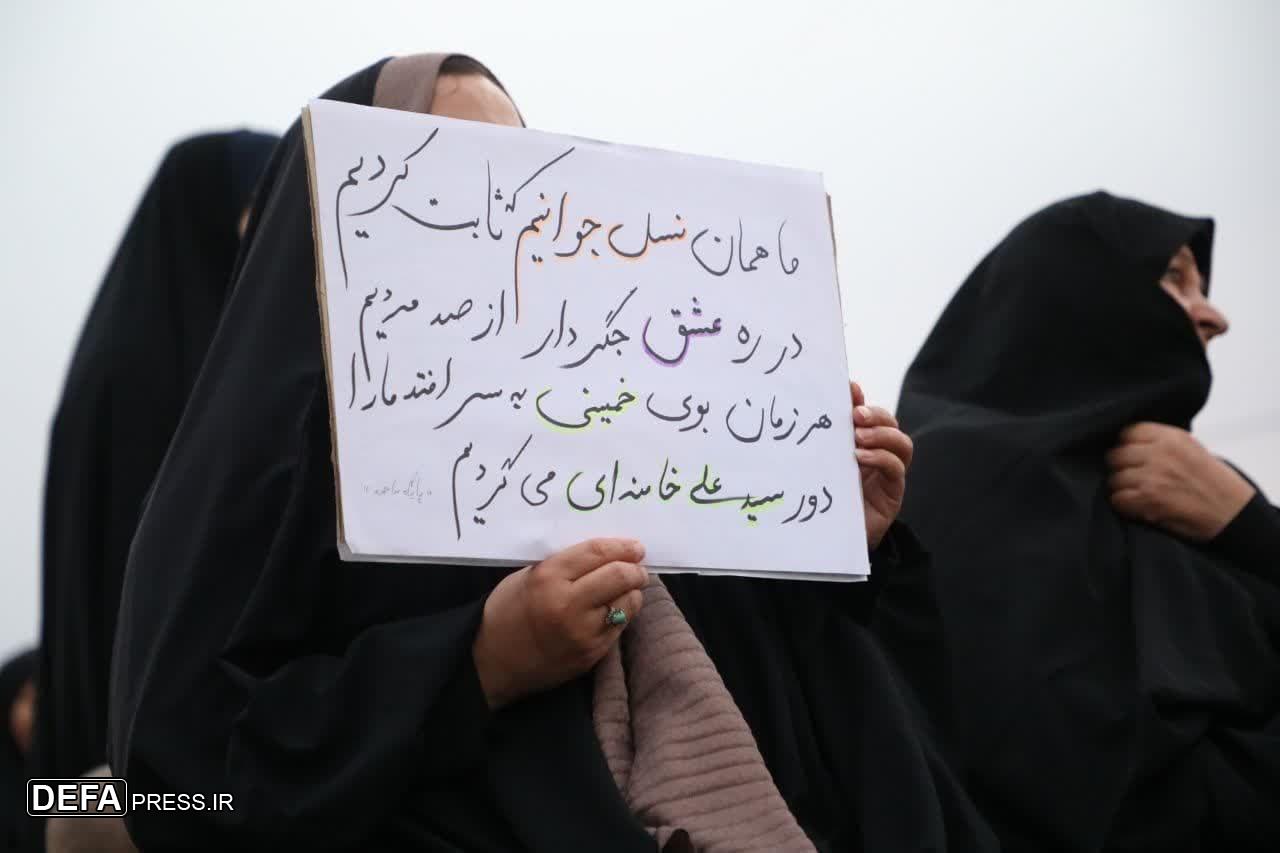 ما همان نسل جوانیم که ثابت کردیم
در ره عشق جگردار از صد مردیم
هر زمان بوی خمینی به سر افتد ما را
دور سید علی خامنه‌ای می گردیم
DEFAPRESS.IR